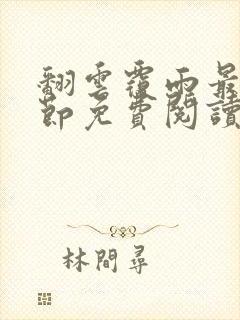 翻雲覆雨最
節免費閱讀
林間尋